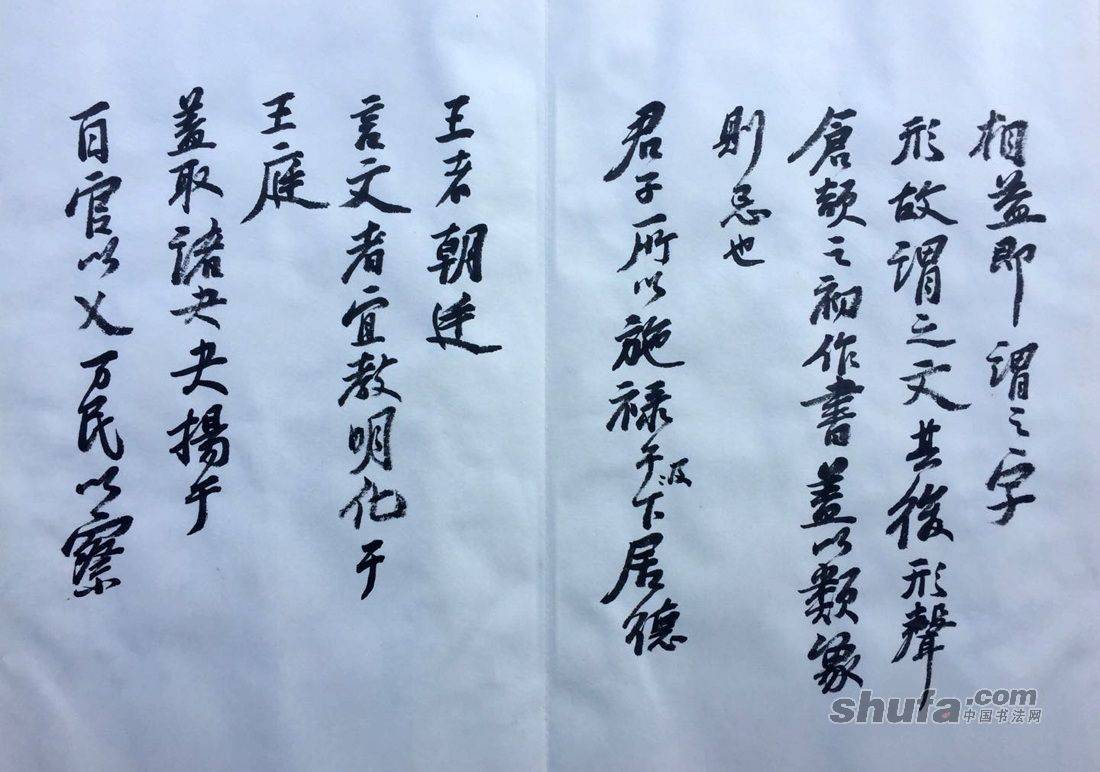 百官以乂万民以察
蓋取諸夬夬揚于
王庭
言文者宣教明化于
王者朝廷
君子所以施禄于及下居德
則忌也
倉頡之初作書蓋以類象
形故謂之文其後形聲
相益即謂之字
shufa.com
中国书法网